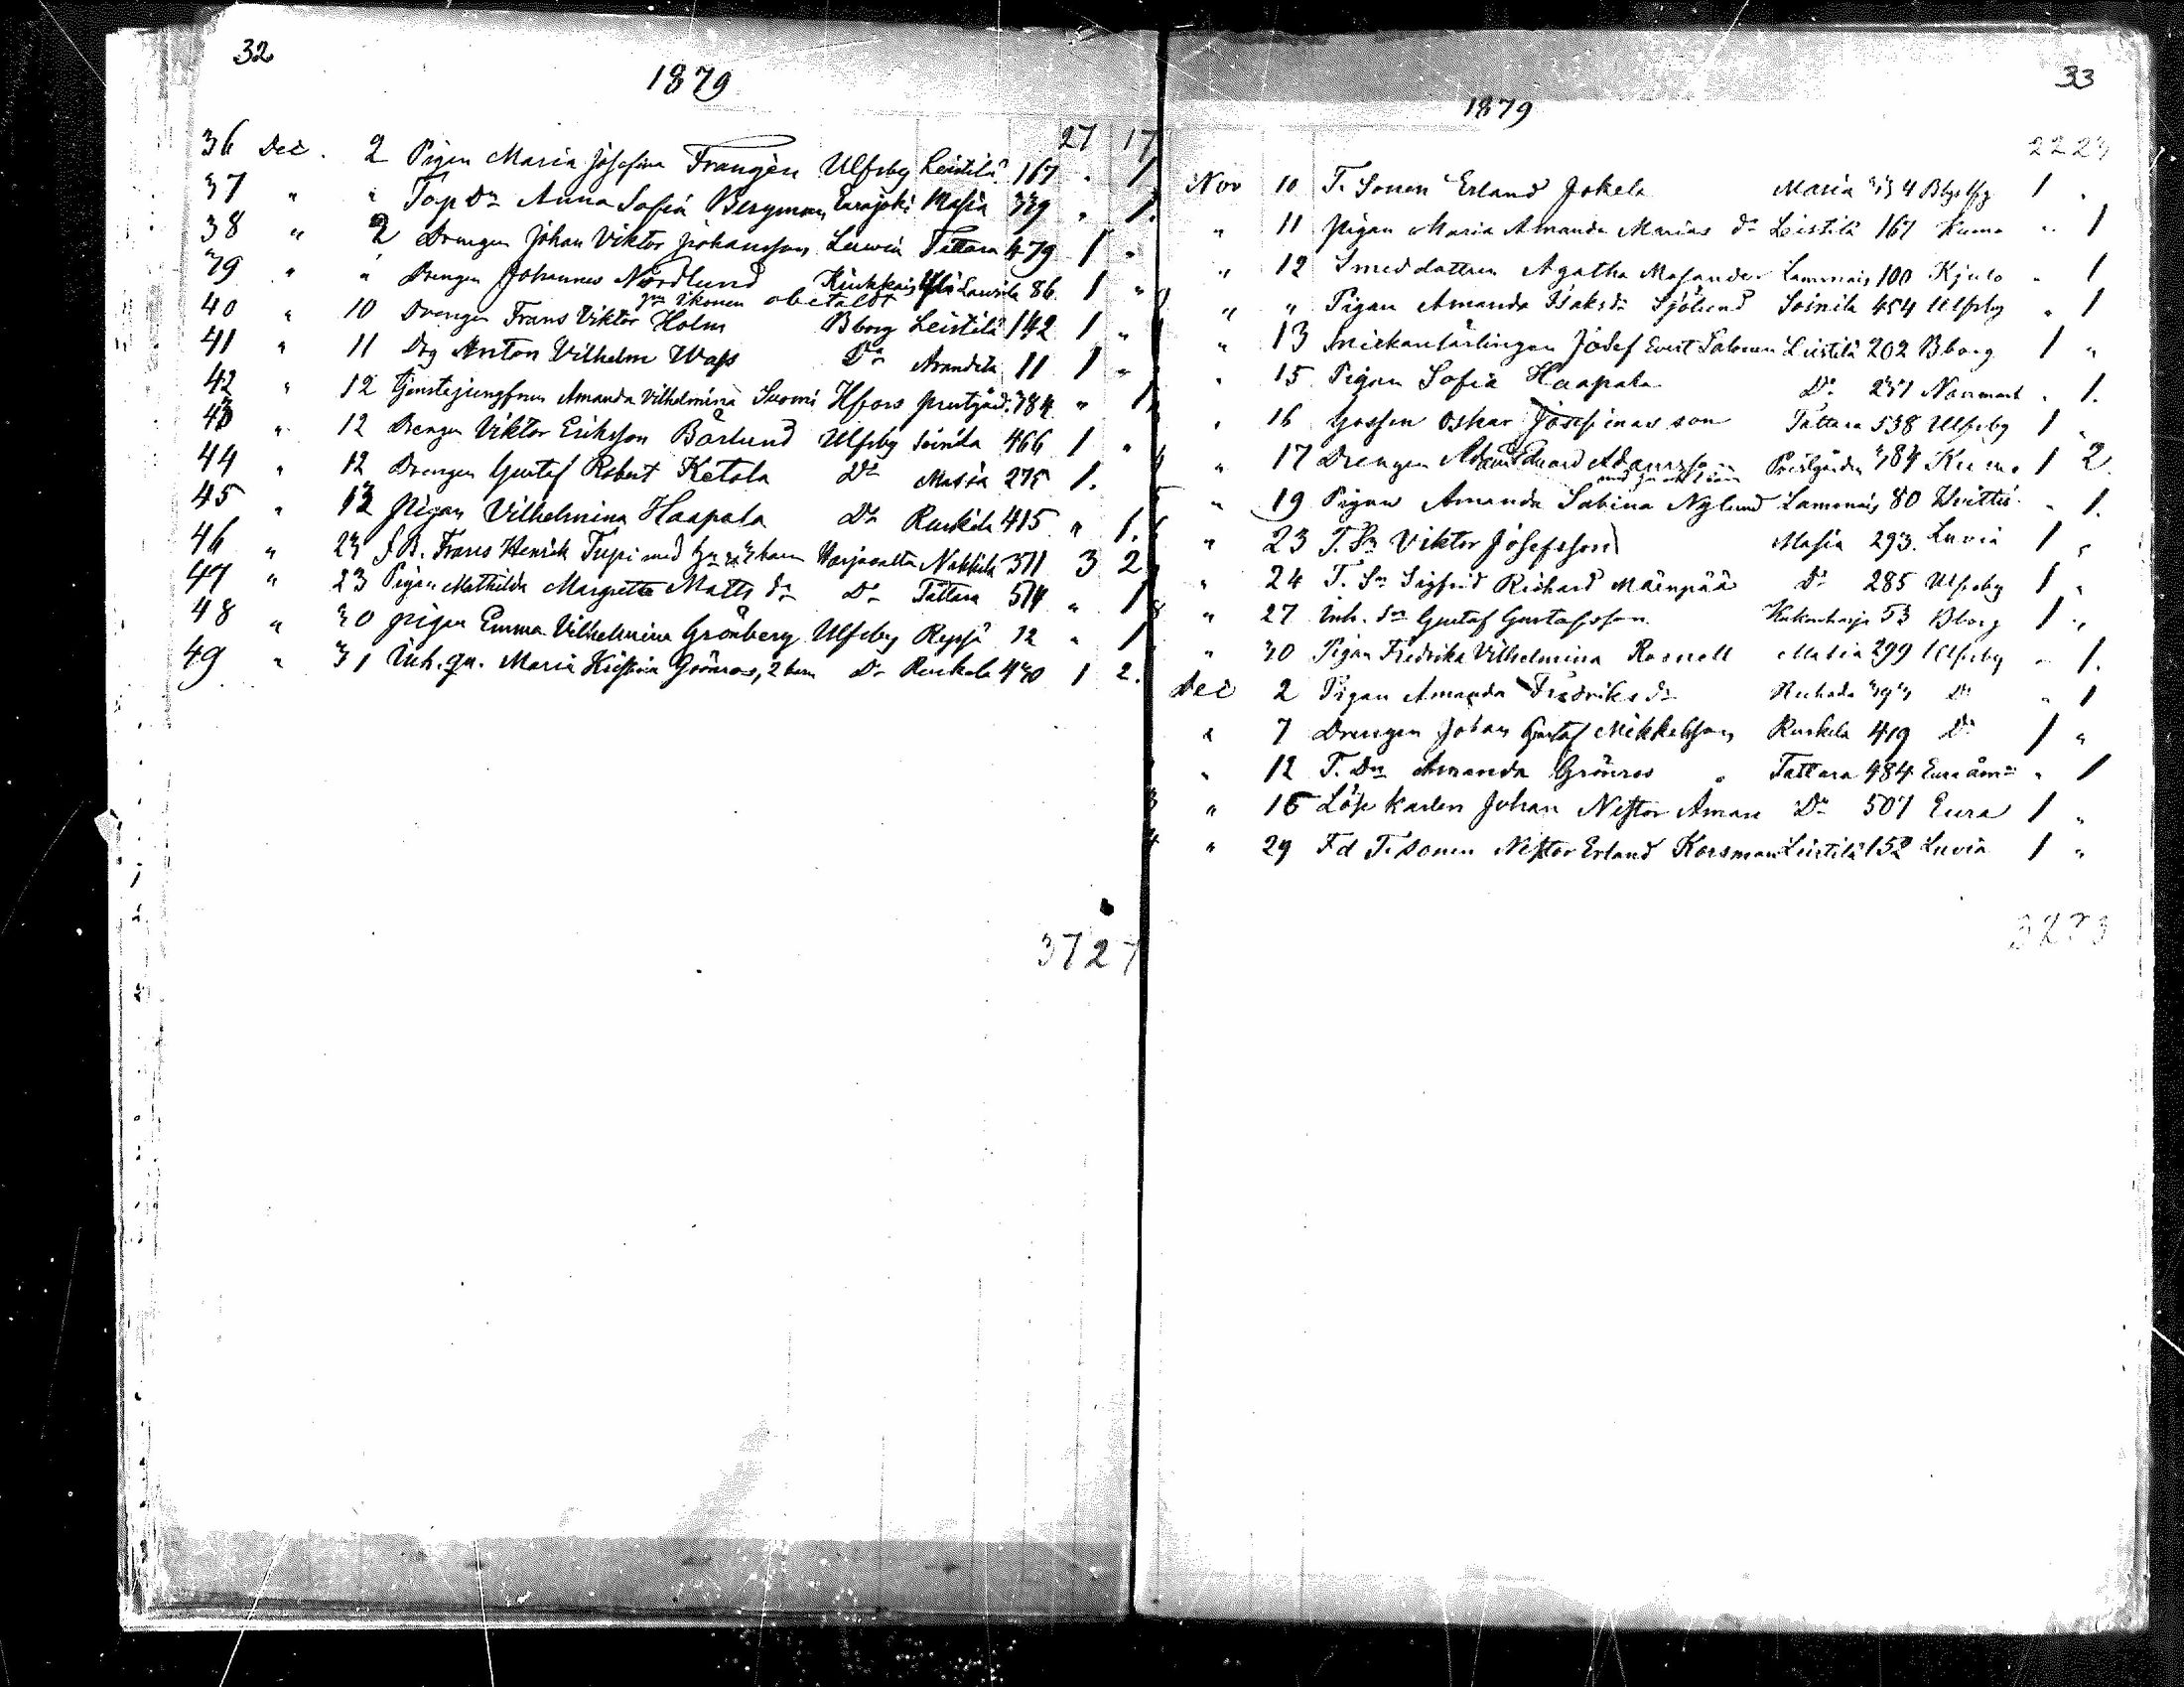 32
1879
27 17
36 Dec. 2 Pigan Maria Josefina Frangén Ulfsby Leistilä 167 " 1
37 " " Torp Dr Anna Sofia Bergman Eurajoki Masia 339 " 1.
38 " 2 Drengen Johan Viktor Johansson Luvia Tattara 479 1 "
39 " " Drengen Johannes Nordlund Kiukkais Lawila 86. 1 "
gm Ikonen obetaldt
40 " 10 Drengen Frans Viktor Holm Bborg Leistilä 142 1 "
41 " 11 Drg Anton Vilhelm Wass Do Arandila 11 1 "
42 " 12 Tjenstejungfrun Amanda Vilhelmina Suomi Hfors Prestgård. 384 " 1
43 " 12 Drengen Viktor Eriksson Bärlund Ulfsby Soinila 466 1 "
44 " 12 Drengen Gustaf Robert Ketola Do Masia 275 1.
45 " 12 Pigan Vilhelmina Haapala Do Ruskila 415 " 1.
46 " 23 Frans Henrik Tupi med hu o 3 barn Harjavalta Nakkila 311 3 2
47 " 23 Pigan Mathilda Margretta Matts dr Do Tattara 514 " 1
48 " 30 Pigan Emma Vilhelmina Grönberg Ulfsby Reppå 12 " 1
49 " 31 Inh. qn. Maria Kristina Grönroos, 2 barn Do Ruskela 430 1 2.
3727
33
1879
22 23
Nov 10 T. Sonen Erland Jokela Masia 334 1 "
" 11 Pigan Maria Amanda Marias dr Leistilä 167 Kumo " 1
" 12 Smeddottren Agatha Masander Lammais 100 Kjulo " 1
" " Pigan Amanda Isaksdr Sjölund Soinila 454 Ulfsby " 1
" 13 Snickarlärlingen Josef Evert Salonen Leistilä 202 Bborg 1 "
" 15 Pigan Sofia Haapala Do 237 Norrmark " 1.
" 16 Gossen Oskar Josefinas son Tattara 538 Ulfsby 1 "
" 17 Drengen Adam Eduard Adamsson Prestgården 384 Kumo 1 2
med hu och 1 barn
" 19 Pigan Amanda Sabina Nylund Lammais 80 Huittis " 1.
" 23 T. Sn Viktor Josefsson Masia 293. Luvia 1 "
" 24 T. Sn Sigfrid Richard Mäenpää Do 285 Ulfsby 1 "
" 27 Inh. Sn Gustaf Gustafsson 53 Bborg 1 "
" 30 Pigan Fredrika Vilhelmina Rosnell Masia 299 Ulfsby " 1.
Dec 2 Pigan Amanda Fredriks dr 393 Do " 1
" 7 Drengen Johan Gustaf Mikkelsson Ruskela 419 Do 1 "
" 12 T. Dn Amanda Grönros Tattara 484 Euraåm. " 1
" 15 Löskarlen Johan Nestor Aman Do 507 Eura 1 "
" 29 Fd T. Sonen Nestor Erland Korsman Leistilä 152 Luvia 1 "